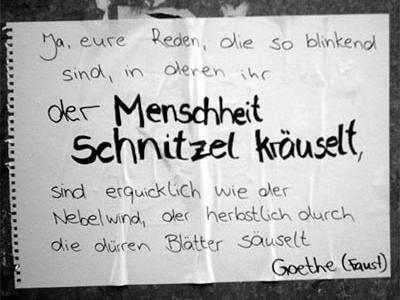 Ja, eure Reden, die so blinkend
sind, in deren ihr
der Menschheit
Schnitzel kräuselt,
sind erquicklich wie der
Nebelwind, der herbstlich durch
die dürren Blätter säuselt
Goethe (Faust)